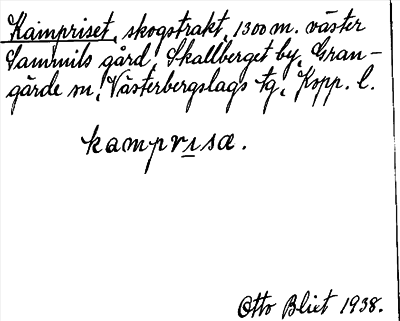 Kampriset, skogstrakt, 1300 m. väster
Sammils gård, Skallberget by, Gran-
gärde sn, Västerbergslags tg, Kopp. l.
kamprısa.
Otto Blixt 1938.